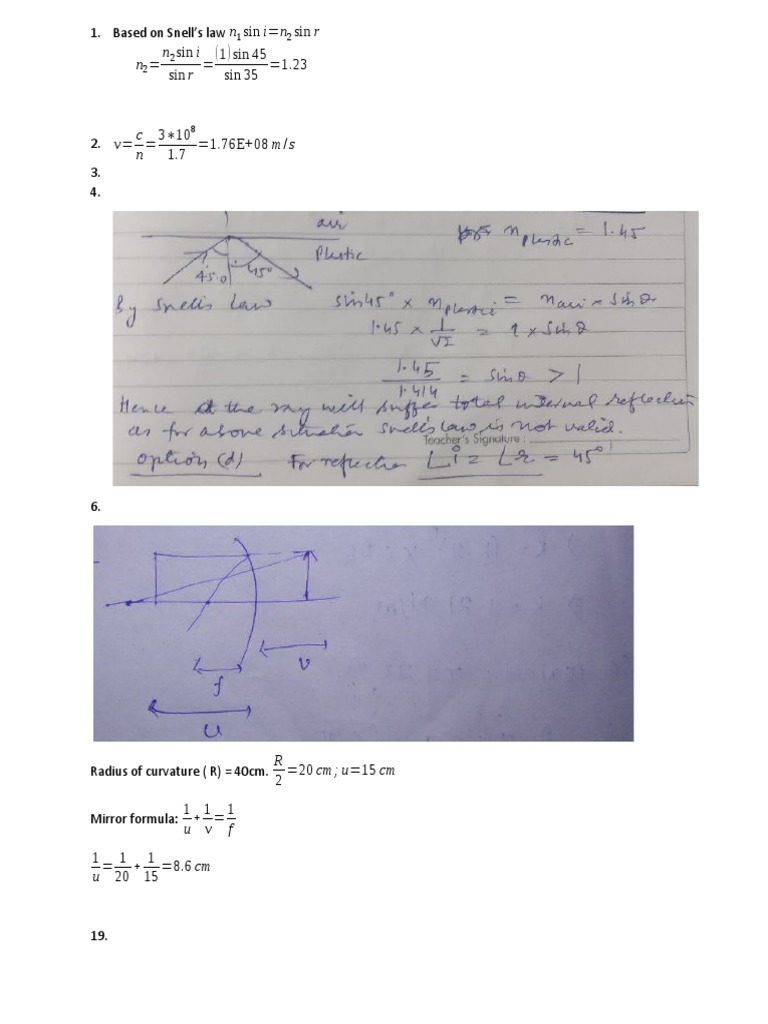 1. Based on Snell's law n₁ sin i = n₂ sin r
n₂ = n₂ sin i / sin r = (1) sin 45 / sin 35 = 1.23
2. v = c/n = 3*10⁸ / 1.7 = 1.76E+08 m/s
3.
4.
air
n plastic = 1.45
Plastic
45° 45°
By Snells Law sin45° × n plastic = n air × Sin θ
1.45 × 1/√2 = 1 × Sin θ
1.45 / 1.414 = sin θ > 1
Hence the ray will suffer total internal reflection
as for above situation Snell's law is not valid.
Teacher's Signature :
option (d) For reflection ∠i = ∠r = 45°
6.
f
v
u
Radius of curvature ( R) =40cm. R/2 = 20 cm ; u = 15 cm
Mirror formula: 1/u + 1/v = 1/f
1/u = 1/20 + 1/15 = 8.6 cm
19.